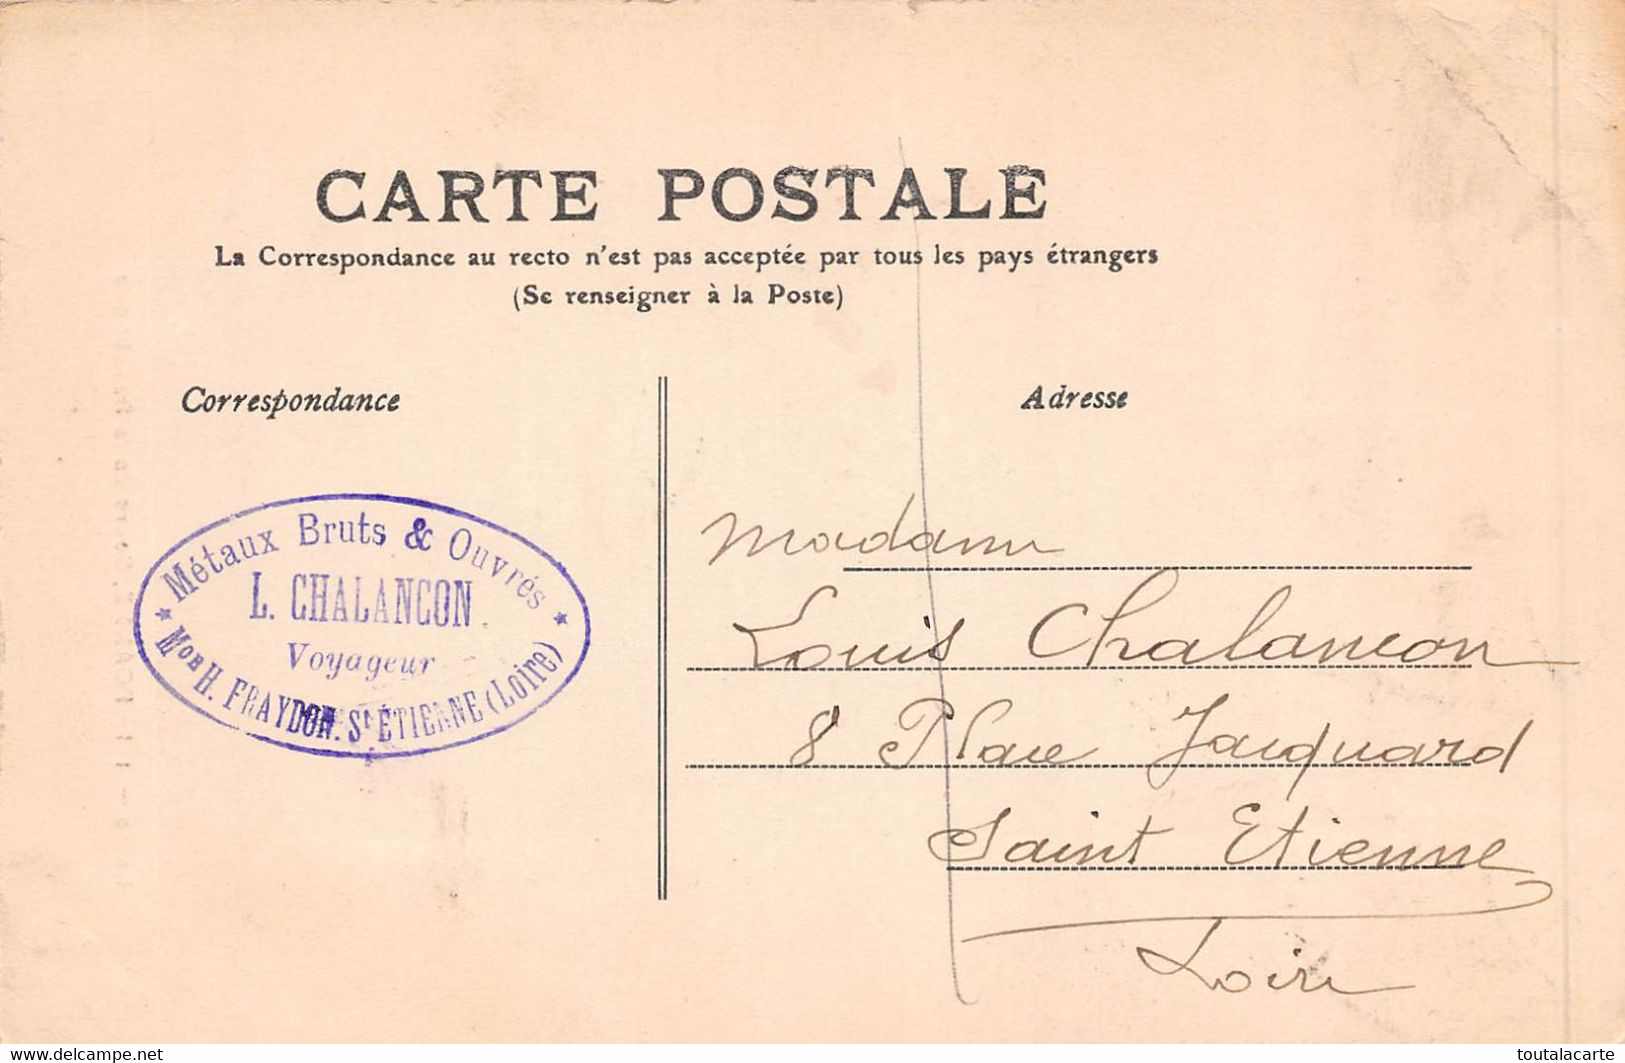 CARTE POSTALE
La Correspondance au recto n'est pas acceptée par tous les pays étrangers
(Se renseigner à la Poste)
Correspondance
Adresse
Métaux Bruts & Ouvrés
L. CHALANCON
Voyageur
Mon H. FRAYDON. St ÉTIENNE (Loire)
Madame
Louis Chalancon
8 Place Jacquard
Saint Etienne
Loire
www.delcampe.net
toutalacarte